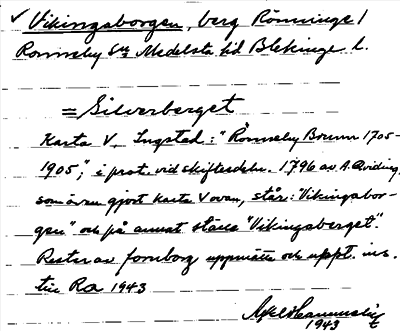 ✓ Vikingaborgen, berg Rönninge /
Ronneby sn Medelsta hd Blekinge l.
= Silverberget
Karta V. Ingstad: "Ronneby Brunn 1705-
1905", i prot. vid skiftesdeln. 1796 av A. Qviding,
som även gjort karta V ovan, står: "Vikingabor-
gen" och på annat ställe "Vikingsberget".
Rester av fornborg uppmätta och uppt. ins.
till Ra 1943
1943